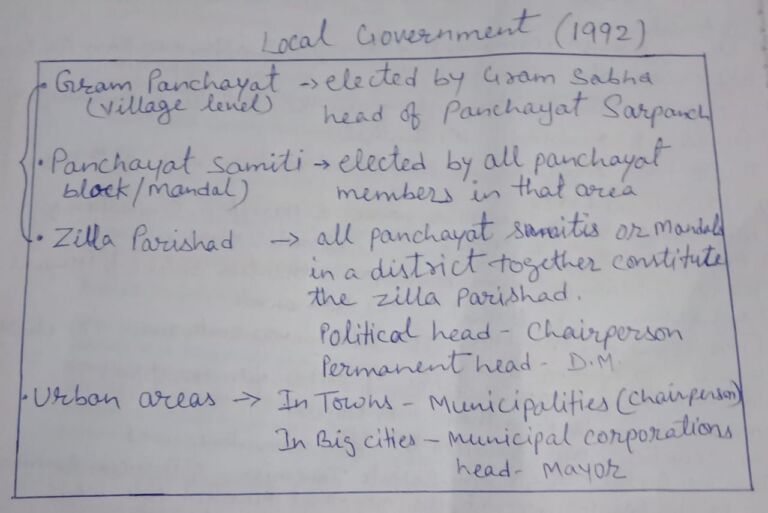 Local Government (1992)
• Gram Panchayat → elected by Gram Sabha
(Village level) head of Panchayat Sarpanch
• Panchayat Samiti → elected by all panchayat
block/mandal) members in that area
• Zilla Parishad → all panchayat samitis or Mandals
in a district together constitute
the zilla parishad.
Political head - Chairperson
Permanent head - D.M.
• Urban areas → In Towns - Municipalities (Chairperson)
In Big cities - Municipal corporations
head - Mayor